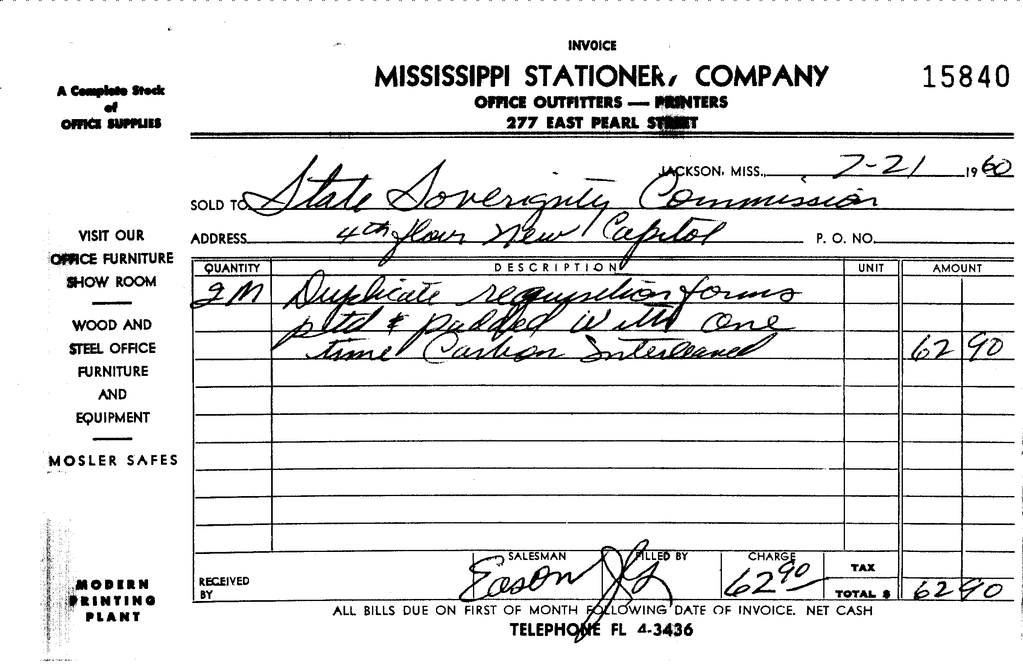 INVOICE
MISSISSIPPI STATIONERY COMPANY
15840
OFFICE OUTFITTERS — PRINTERS
277 EAST PEARL STREET
A Complete Stock
of
OFFICE SUPPLIES
JACKSON, MISS., 7-21 1960
SOLD TO State Soverignty Commission
ADDRESS 4th floor New Capitol P. O. NO.
VISIT OUR
OFFICE FURNITURE
SHOW ROOM
WOOD AND
STEEL OFFICE
FURNITURE
AND
EQUIPMENT
MOSLER SAFES
MODERN
PRINTING
PLANT
QUANTITY DESCRIPTION UNIT AMOUNT
2M Duplicate requisition forms
ptd & padded with one
time Carbon Interleaved 62 90
RECEIVED BY
SALESMAN Eason
FILLED BY
CHARGE 62 90
TAX
TOTAL $ 62 90
ALL BILLS DUE ON FIRST OF MONTH FOLLOWING DATE OF INVOICE. NET CASH
TELEPHONE FL 4-3436